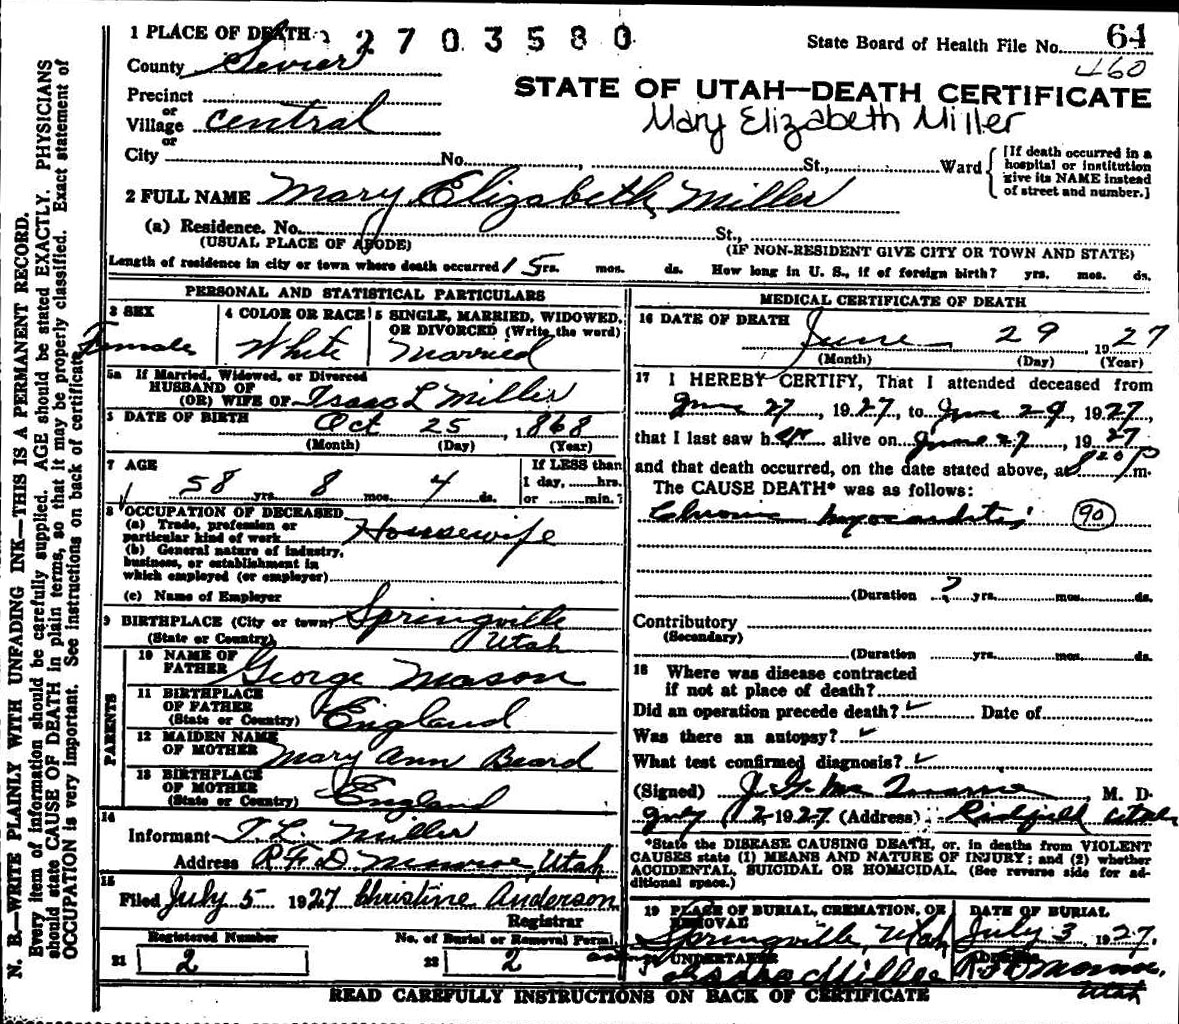 1 PLACE OF DEATH 2 7 0 3 5 8 0
State Board of Health File No. 64
460
County Sevier
STATE OF UTAH—DEATH CERTIFICATE
Precinct
or
Village Central
Mary Elizabeth Miller
or
City No. , St., Ward
[If death occurred in a
hospital or institution
give its NAME instead
of street and number.]
2 FULL NAME Mary Elizabeth Miller
(a) Residence. No. St.,
(USUAL PLACE OF ABODE) (IF NON-RESIDENT GIVE CITY OR TOWN AND STATE)
Length of residence in city or town where death occurred 15 yrs. mos. ds. How long in U. S., if of foreign birth? yrs. mos. ds.
PERSONAL AND STATISTICAL PARTICULARS
3 SEX Female
4 COLOR OR RACE White
5 SINGLE, MARRIED, WIDOWED,
OR DIVORCED (Write the word)
Married
5a If Married, Widowed, or Divorced
HUSBAND OF
(OR) WIFE OF Isaac L Miller
DATE OF BIRTH Oct 25, 1868
(Month) (Day) (Year)
7 AGE 58 yrs. 8 mos. 4 ds.
If LESS than
1 day, hrs.
or min.?
8 OCCUPATION OF DECEASED
(a) Trade, profession or
particular kind of work Housewife
(b) General nature of industry,
business, or establishment in
which employed (or employer)
(c) Name of Employer
9 BIRTHPLACE (City or town) Springville
(State or Country) Utah
PARENTS
10 NAME OF
FATHER George Mason
11 BIRTHPLACE
OF FATHER
(State or Country) England
12 MAIDEN NAME
OF MOTHER Mary Ann Beard
13 BIRTHPLACE
OF MOTHER
(State or Country) England
14
Informant I. L. Miller
Address R.F.D. Monroe, Utah
15
Filed July 5 1927 Christine Anderson
Registrar
Registered Number No. of Burial or Removal Permit
21 2 22 2
MEDICAL CERTIFICATE OF DEATH
16 DATE OF DEATH
June 29, 1927
(Month) (Day) (Year)
17 I HEREBY CERTIFY, That I attended deceased from
June 27, 1927, to June 29, 1927,
that I last saw her alive on June 27, 1927
and that death occurred, on the date stated above, at 8 20 P m.
The CAUSE DEATH* was as follows:
Chronic myocarditis 90
(Duration ? yrs. mos. ds.
Contributory
(Secondary)
(Duration yrs. mos. ds.
18 Where was disease contracted
if not at place of death?
Did an operation precede death? ✓ Date of
Was there an autopsy? ✓
What test confirmed diagnosis? ✓
(Signed) J. G. M. D.
July 2 1927 (Address) Richfield Utah
*State the DISEASE CAUSING DEATH, or, in deaths from VIOLENT
CAUSES state (1) MEANS AND NATURE OF INJURY; and (2) whether
ACCIDENTAL, SUICIDAL OR HOMICIDAL. (See reverse side for ad-
ditional space.)
19 PLACE OF BURIAL, CREMATION, OR
REMOVAL
Springville, Utah
DATE OF BURIAL
July 3, 1927.
UNDERTAKER
Miller
ADDRESS
R.F.D. Monroe,
Utah
READ CAREFULLY INSTRUCTIONS ON BACK OF CERTIFICATE
N. B.—WRITE PLAINLY WITH UNFADING INK—THIS IS A PERMANENT RECORD.
Every item of information should be carefully supplied. AGE should be stated EXACTLY. PHYSICIANS
should state CAUSE OF DEATH in plain terms, so that it may be properly classified. Exact statement of
OCCUPATION is very important. See instructions on back of certificate.